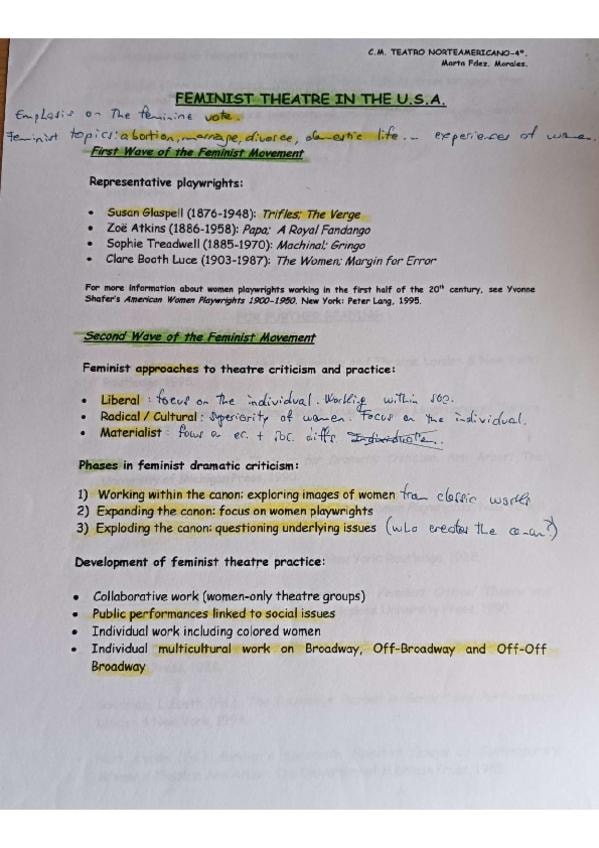 C.M. TEATRO NORTEAMERICANO-4º.
Marta Fdez. Morales.
FEMINIST THEATRE IN THE U.S.A.
Emphasis on the feminine vote.
Feminist topics: abortion, marriage, divorce, domestic life... experiences of women.
First Wave of the Feminist Movement
Representative playwrights:
• Susan Glaspell (1876-1948): Trifles; The Verge
• Zoë Atkins (1886-1958): Papa; A Royal Fandango
• Sophie Treadwell (1885-1970): Machinal; Gringo
• Clare Booth Luce (1903-1987): The Women; Margin for Error
For more information about women playwrights working in the first half of the 20th century, see Yvonne
Shafer's American Women Playwrights 1900-1950. New York: Peter Lang, 1995.
Second Wave of the Feminist Movement
Feminist approaches to theatre criticism and practice:
• Liberal : focus on the individual. Working within soc.
• Radical / Cultural : superiority of women. Focus on the individual.
• Materialist : focus on ec. + soc. diffs
Phases in feminist dramatic criticism:
1) Working within the canon: exploring images of women from classic works
2) Expanding the canon: focus on women playwrights
3) Exploding the canon: questioning underlying issues (who creates the canon?)
Development of feminist theatre practice:
• Collaborative work (women-only theatre groups)
• Public performances linked to social issues
• Individual work including colored women
• Individual multicultural work on Broadway, Off-Broadway and Off-Off
Broadway